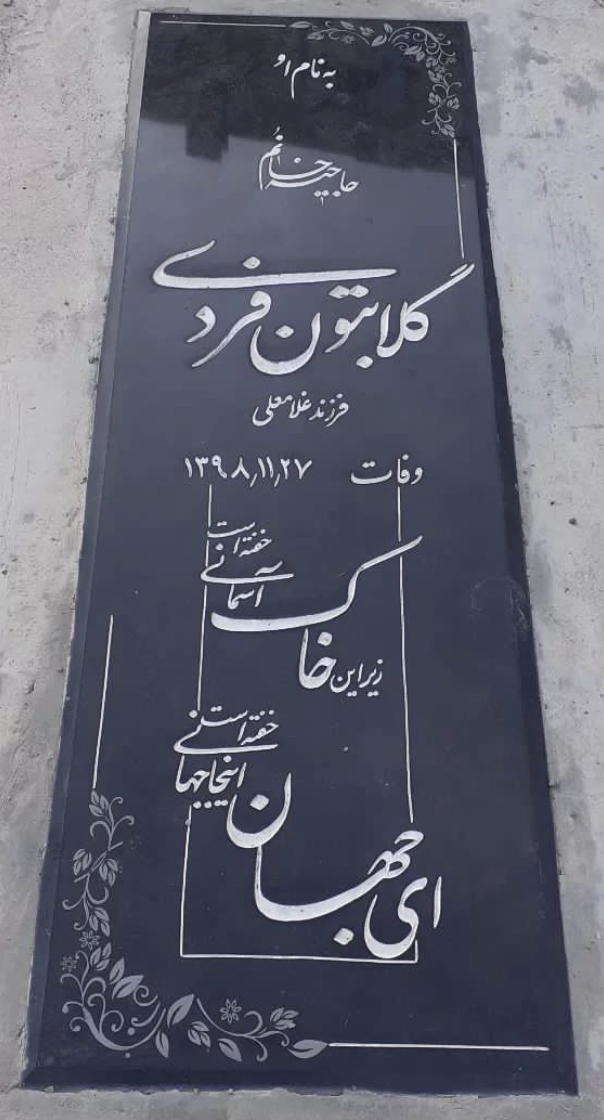 به نام او
حاجیه خانم
گلابتون فردی
فرزند غلامعلی
وفات ۱۳۹۸٫۱۱٫۲۷
زیر این خاک آسمانی خفته است
ای جهان اینجا جهانی خفته است